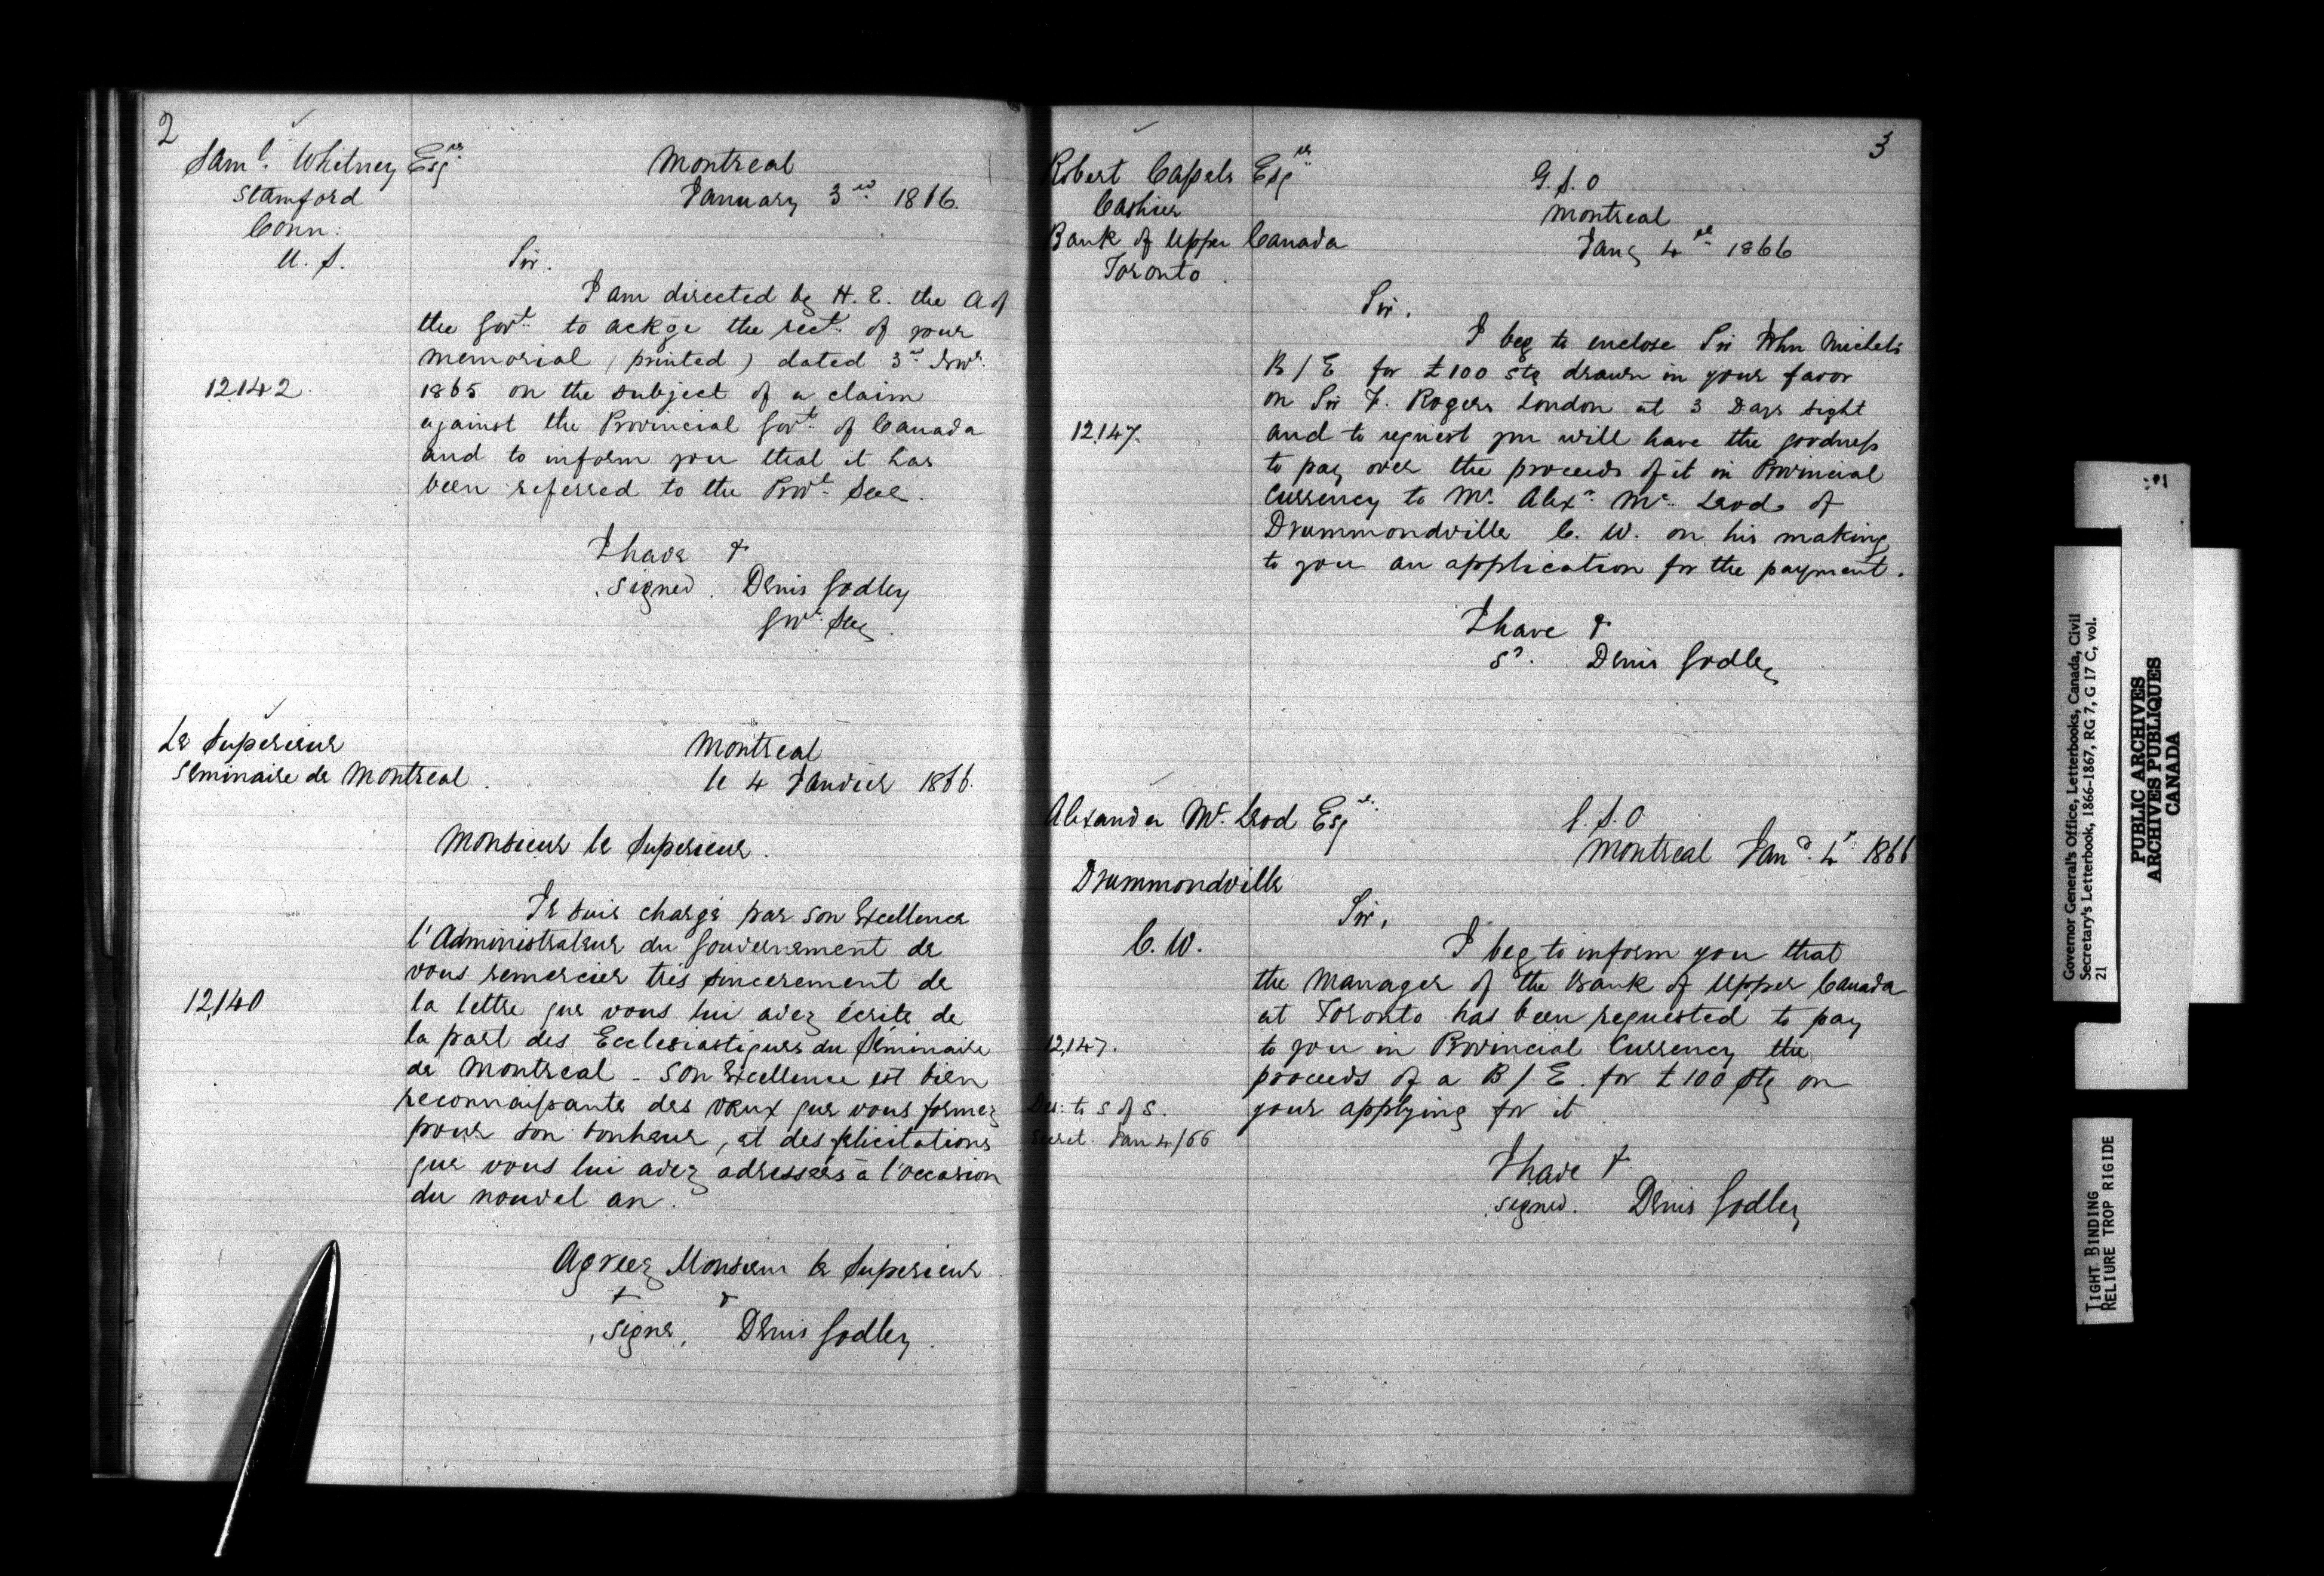 2
Saml. Whitney Esqre
Stamford
Conn:
U. S.
Montreal
January 3rd 1866.
Sir.
I am directed by H. E. the A of
the Govt. to ackge the rect. of your
memorial (printed) dated 3rd Novr.
12,142.
1865 on the subject of a claim
against the Provincial Govt. of Canada
and to inform you that it has
been referred to the Provl. Sec.
I have &
signed. Denis Godley
Govr. Secy.
Le Superieur
Seminaire de Montreal.
Montreal
le 4 Janvier 1866.
Monsieur le Superieur.
Je suis chargé par son Excellence
l'Administrateur du Gouvernement de
vous remercier trés sincerement de
12,140
la lettre que vous lui avez écrite de
la part des Ecclesiastiques du Séminaire
de Montreal - Son Excellence est bien
reconnaissante des vœux que vous formez
pour son bonheur, et des felicitations
que vous lui avez adressées à l'occasion
du nouvel an.
Agreez Monsieur le Superieur
& &
signe, Denis Godley.
3
Robert Cassels Esqre
Cashier
Bank of Upper Canada
Toronto.
G. S. O
Montreal
Jany 4th 1866
Sir.
I beg to enclose Sir John Michel's
B/E for £100 stg drawn in your favor
on Sir F. Rogers London at 3 Days sight
12,147.
and to request you will have the goodness
to pay over the proceeds of it in Provincial
Currency to Mr. Alexr. Mc. Leod of
Drummondville C. W. on his making
to you an application for the payment.
I have &
sd. Denis Godley
Alexander Mc. Leod Esqr.
Drummondville
C. W.
G. S. O
Montreal Jany. 4th 1866
Sir,
I beg to inform you that
the Manager of the Bank of Upper Canada
at Toronto has been requested to pay
12,147.
to you in Provincial Currency the
proceeds of a B/E. for £100 stg on
Des: to S of S.
your applying for it
Secret. Jan 4/66
I have &
signed. Denis Godley
Governor General's Office, Letterbooks, Canada, Civil
Secretary's Letterbook, 1866-1867, RG 7, G 17 C, vol.
21
PUBLIC ARCHIVES
ARCHIVES PUBLIQUES
CANADA
TIGHT BINDING
RELIURE TROP RIGIDE